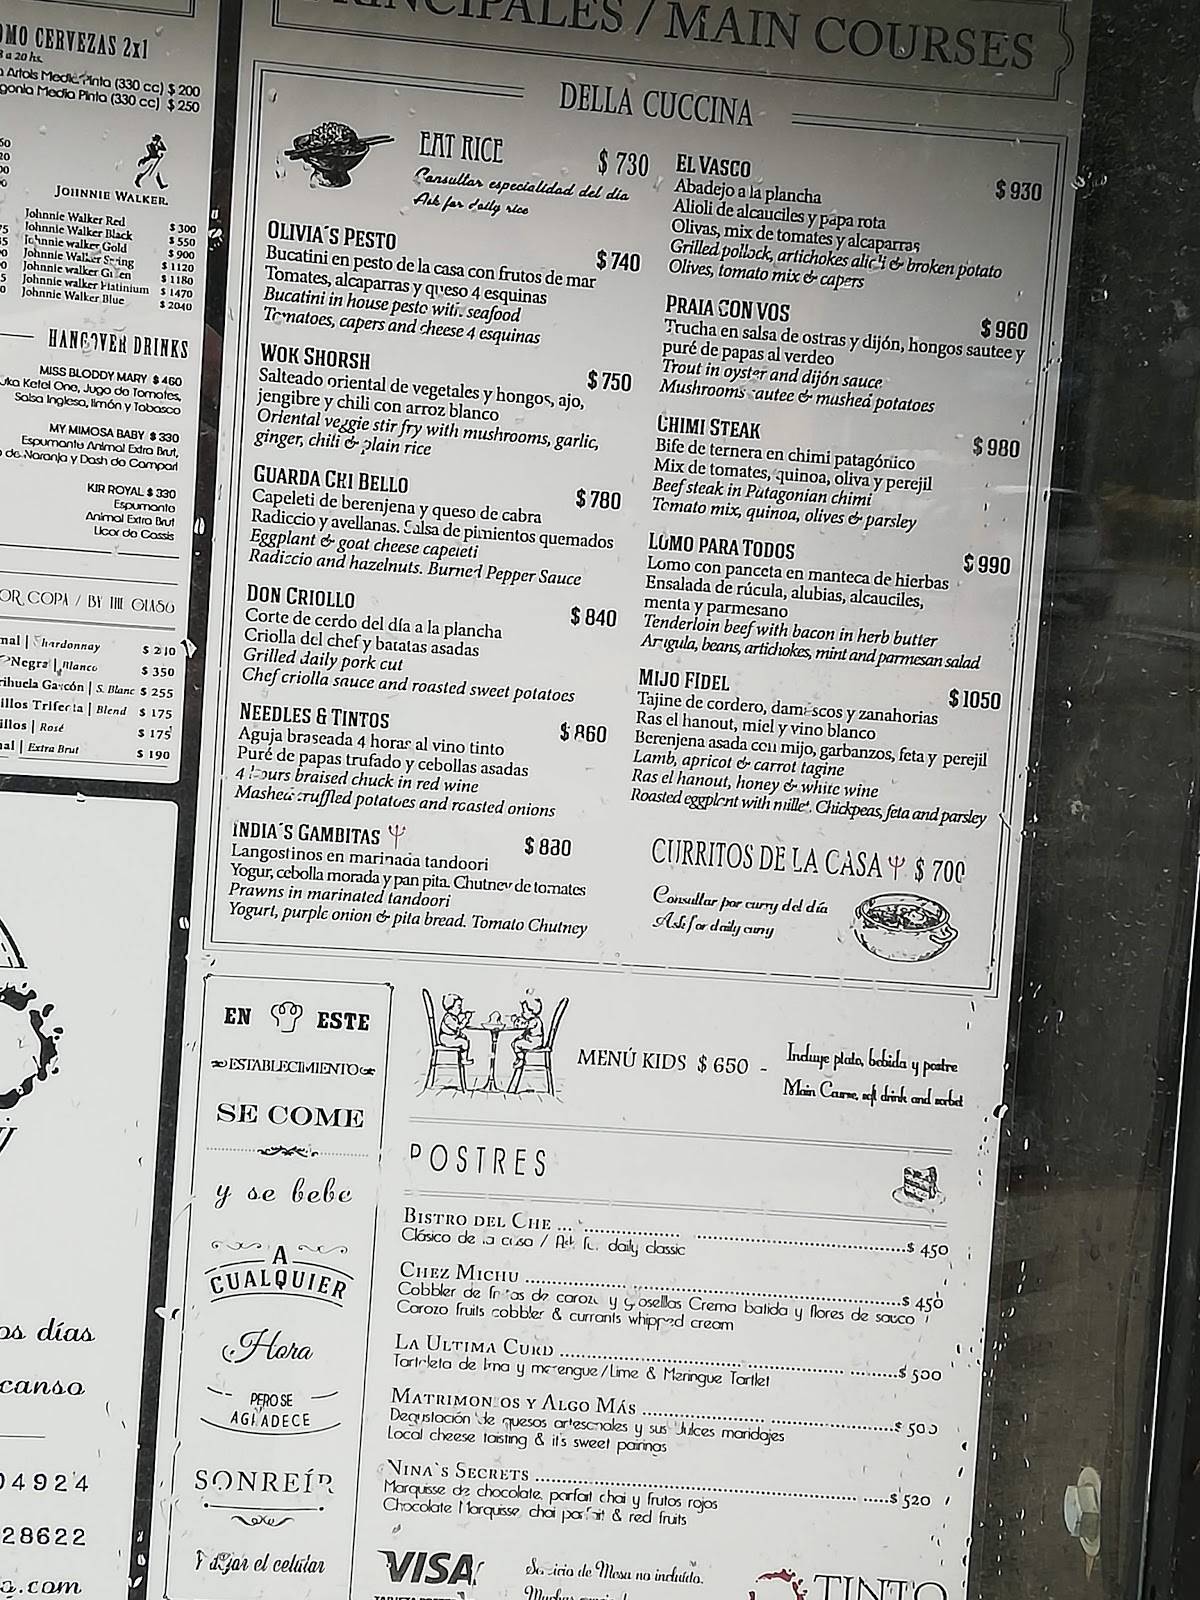 PRINCIPALES / MAIN COURSES
DELLA CUCCINA
EAT RICE $ 730
Consultar especialidad del día
Ask for daily rice
OLIVIA´S PESTO $ 740
Bucatini en pesto de la casa con frutos de mar
Tomates, alcaparras y queso 4 esquinas
Bucatini in house pesto with seafood
Tomatoes, capers and cheese 4 esquinas
WOK SHORSH $ 750
Salteado oriental de vegetales y hongos, ajo,
jengibre y chili con arroz blanco
Oriental veggie stir fry with mushrooms, garlic,
ginger, chili & plain rice
GUARDA CHI BELLO $ 780
Capeleti de berenjena y queso de cabra
Radiccio y avellanas. Salsa de pimientos quemados
Eggplant & goat cheese capeleti
Radiccio and hazelnuts. Burned Pepper Sauce
DON CRIOLLO $ 840
Corte de cerdo del día a la plancha
Criolla del chef y batatas asadas
Grilled daily pork cut
Chef criolla sauce and roasted sweet potatoes
NEEDLES & TINTOS $ 860
Aguja braseada 4 horas al vino tinto
Puré de papas trufado y cebollas asadas
4 hours braised chuck in red wine
Mashed truffled potatoes and roasted onions
INDIA´S GAMBITAS $ 880
Langostinos en marinada tandoori
Yogur, cebolla morada y pan pita. Chutney de tomates
Prawns in marinated tandoori
Yogurt, purple onion & pita bread. Tomato Chutney
EL VASCO $ 930
Abadejo a la plancha
Alioli de alcauciles y papa rota
Olivas, mix de tomates y alcaparras
Grilled pollock, artichokes alioli & broken potato
Olives, tomato mix & capers
PRAIA CON VOS $ 960
Trucha en salsa de ostras y dijón, hongos sautee y
puré de papas al verdeo
Trout in oyster and dijón sauce
Mushrooms sautee & mushed potatoes
CHIMI STEAK $ 980
Bife de ternera en chimi patagónico
Mix de tomates, quinoa, oliva y perejil
Beef steak in Patagonian chimi
Tomato mix, quinoa, olives & parsley
LOMO PARA TODOS $ 990
Lomo con panceta en manteca de hierbas
Ensalada de rúcula, alubias, alcauciles,
menta y parmesano
Tenderloin beef with bacon in herb butter
Arugula, beans, artichokes, mint and parmesan salad
MIJO FIDEL $ 1050
Tajine de cordero, damascos y zanahorias
Ras el hanout, miel y vino blanco
Berenjena asada con mijo, garbanzos, feta y perejil
Lamb, apricot & carrot tagine
Ras el hanout, honey & white wine
Roasted eggplant with millet. Chickpeas, feta and parsley
CURRITOS DE LA CASA $ 700
Consultar por curry del día
Ask for daily curry
MENÚ KIDS $ 650 - Incluye plato, bebida y postre
Main Course, soft drink and sorbet
POSTRES
BISTRO DEL CHE ... $ 450
Clásico de la casa / Ask for daily classic
CHEZ MICHU ... $ 450
Cobbler de frutas de carozo y grosellas Crema batida y flores de sauco
Carozo fruits cobbler & currants whipped cream
LA ULTIMA CURD ... $ 500
Tartaleta de lima y merengue / Lime & Meringue Tartlet
MATRIMONIOS Y ALGO MÁS ... $ 500
Degustación de quesos artesanales y sus dulces maridajes
Local cheese taisting & it's sweet pairings
NINA`S SECRETS ... $ 520
Marquisse de chocolate, parfait chai y frutos rojos
Chocolate Marquisse, chai parfait & red fruits
VISA
Servicio de Mesa no incluido.
TINTO
EN ESTE
ESTABLECIMIENTO
SE COME
y se bebe
A
CUALQUIER
Hora
PERO SE
AGRADECE
SONREÍR
Y dejar el celular
OMO CERVEZAS 2x1
a 20 hs.
Artois Media Pinta (330 cc) $ 200
gonia Media Pinta (330 cc) $ 250
JOHNNIE WALKER.
Johnnie Walker Red $ 300
Johnnie Walker Black $ 550
Johnnie walker Gold $ 900
Johnnie Walker Swing $ 1120
Johnnie walker Green $ 1180
Johnnie walker Platinium $ 1470
Johnnie Walker Blue $ 2040
HANGOVER DRINKS
MISS BLODDY MARY $ 460
Ketel One, Jugo de Tomates,
Salsa Inglesa, limón y Tabasco
MY MIMOSA BABY $ 330
Espumante Animal Extra Brut,
de Naranja y Dash de Campari
KIR ROYAL $ 330
Espumante
Animal Extra Brut
Licor de Cassis
OR COPA / BY THE GLASS
mal | Chardonnay $ 210
Negra | Blanco $ 350
rihuela Gascón | S. Blanc $ 255
illos Trifecta | Blend $ 175
illos | Rosé $ 175
al | Extra Brut $ 190
os días
canso
04924
28622
.com